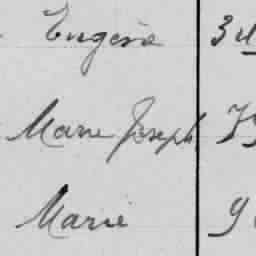 Eugénie 3
Marie Joseph
Marie 9